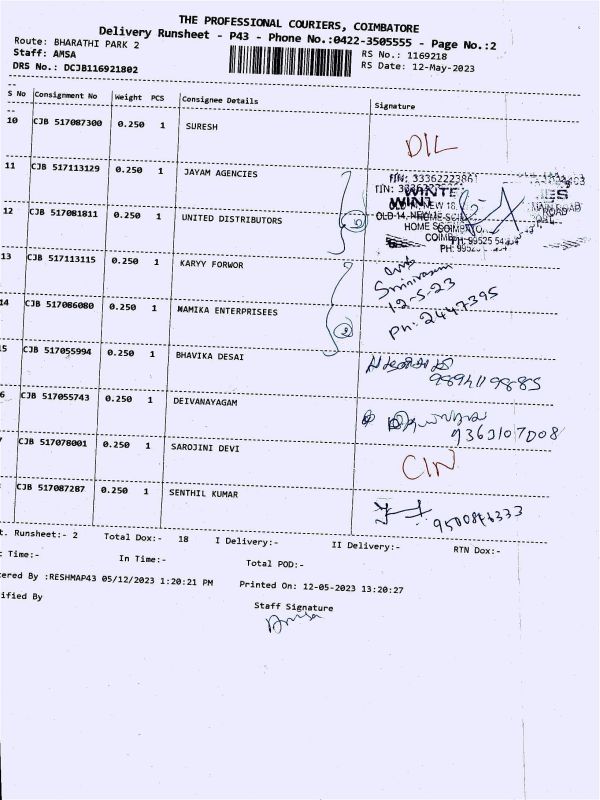 THE PROFESSIONAL COURIERS, COIMBATORE
Delivery Runsheet - P43 - Phone No.:0422-3505555 - Page No.:2
Route: BHARATHI PARK 2
RS No.: 1169218
Staff: AMSA
RS Date: 12-May-2023
DRS No.: DCJB116921802
S No Consignment No Weight PCS Consignee Details Signature
10 CJB 517087300 0.250 1 SURESH DIL
11 CJB 517113129 0.250 1 JAYAM AGENCIES
TIN: 33362223861
12 CJB 517081811 0.250 1 UNITED DISTRIBUTORS
13 CJB 517113115 0.250 1 KARYY FORWOR
Srinivasan
12-5-23
14 CJB 517086080 0.250 1 MAMIKA ENTERPRISEES
Ph: 2447395
5 CJB 517055994 0.250 1 BHAVIKA DESAI
9894119885
6 CJB 517055743 0.250 1 DEIVANAYAGAM
9363107008
CJB 517078001 0.250 1 SAROJINI DEVI CIN
CJB 517087287 0.250 1 SENTHIL KUMAR
9500846333
t. Runsheet:- 2 Total Dox:- 18 I Delivery:- II Delivery:- RTN Dox:-
Time:- In Time:- Total POD:-
ered By :RESHMAP43 05/12/2023 1:20:21 PM Printed On: 12-05-2023 13:20:27
ified By
Staff Signature
Amsa